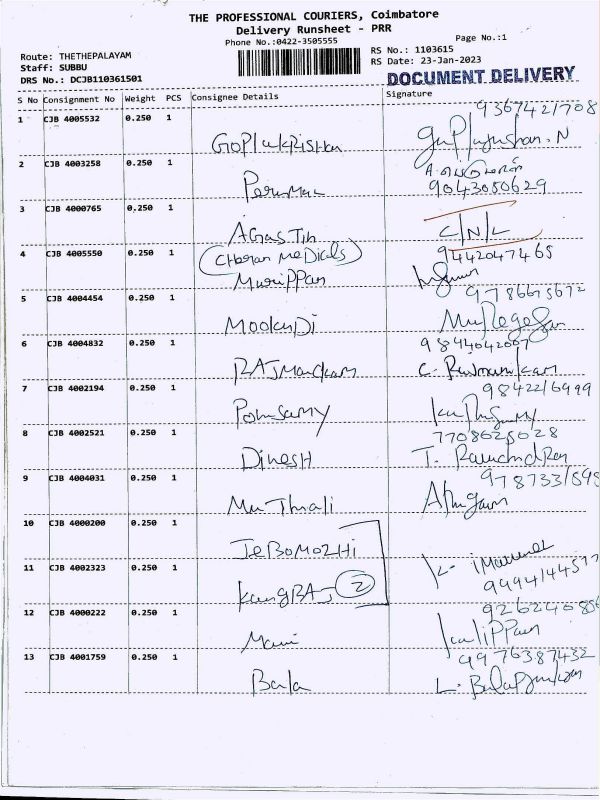 THE PROFESSIONAL COURIERS, Coimbatore
Delivery Runsheet - PRR
Phone No.:0422-3505555
Page No.:1
Route: THETHEPALAYAM
Staff: SUBBU
DRS No.: DCJB110361501
RS No.: 1103615
RS Date: 23-Jan-2023
DOCUMENT DELIVERY
S No Consignment No Weight PCS Consignee Details Signature
9367421708
1 CJB 4005532 0.250 1
2 CJB 4003258 0.250 1 Perumal
9043050629
3 CJB 4000765 0.250 1 AGasTin C/N/L
4 CJB 4005550 0.250 1 (Cheran MeDicals) 9442047465
MuruPPan
5 CJB 4004454 0.250 1 9786675672
MookuDi
6 CJB 4004832 0.250 1 9844042007
RAJMandkam
7 CJB 4002194 0.250 1 9842216999
PonnSamy
8 CJB 4002521 0.250 1 7708625028
Dinesh
9 CJB 4004031 0.250 1
MuThali
10 CJB 4000200 0.250 1
JeBoMOZHi
11 CJB 4002323 0.250 1
2
12 CJB 4000222 0.250 1
Mani
13 CJB 4001759 0.250 1 9976387432
Bala